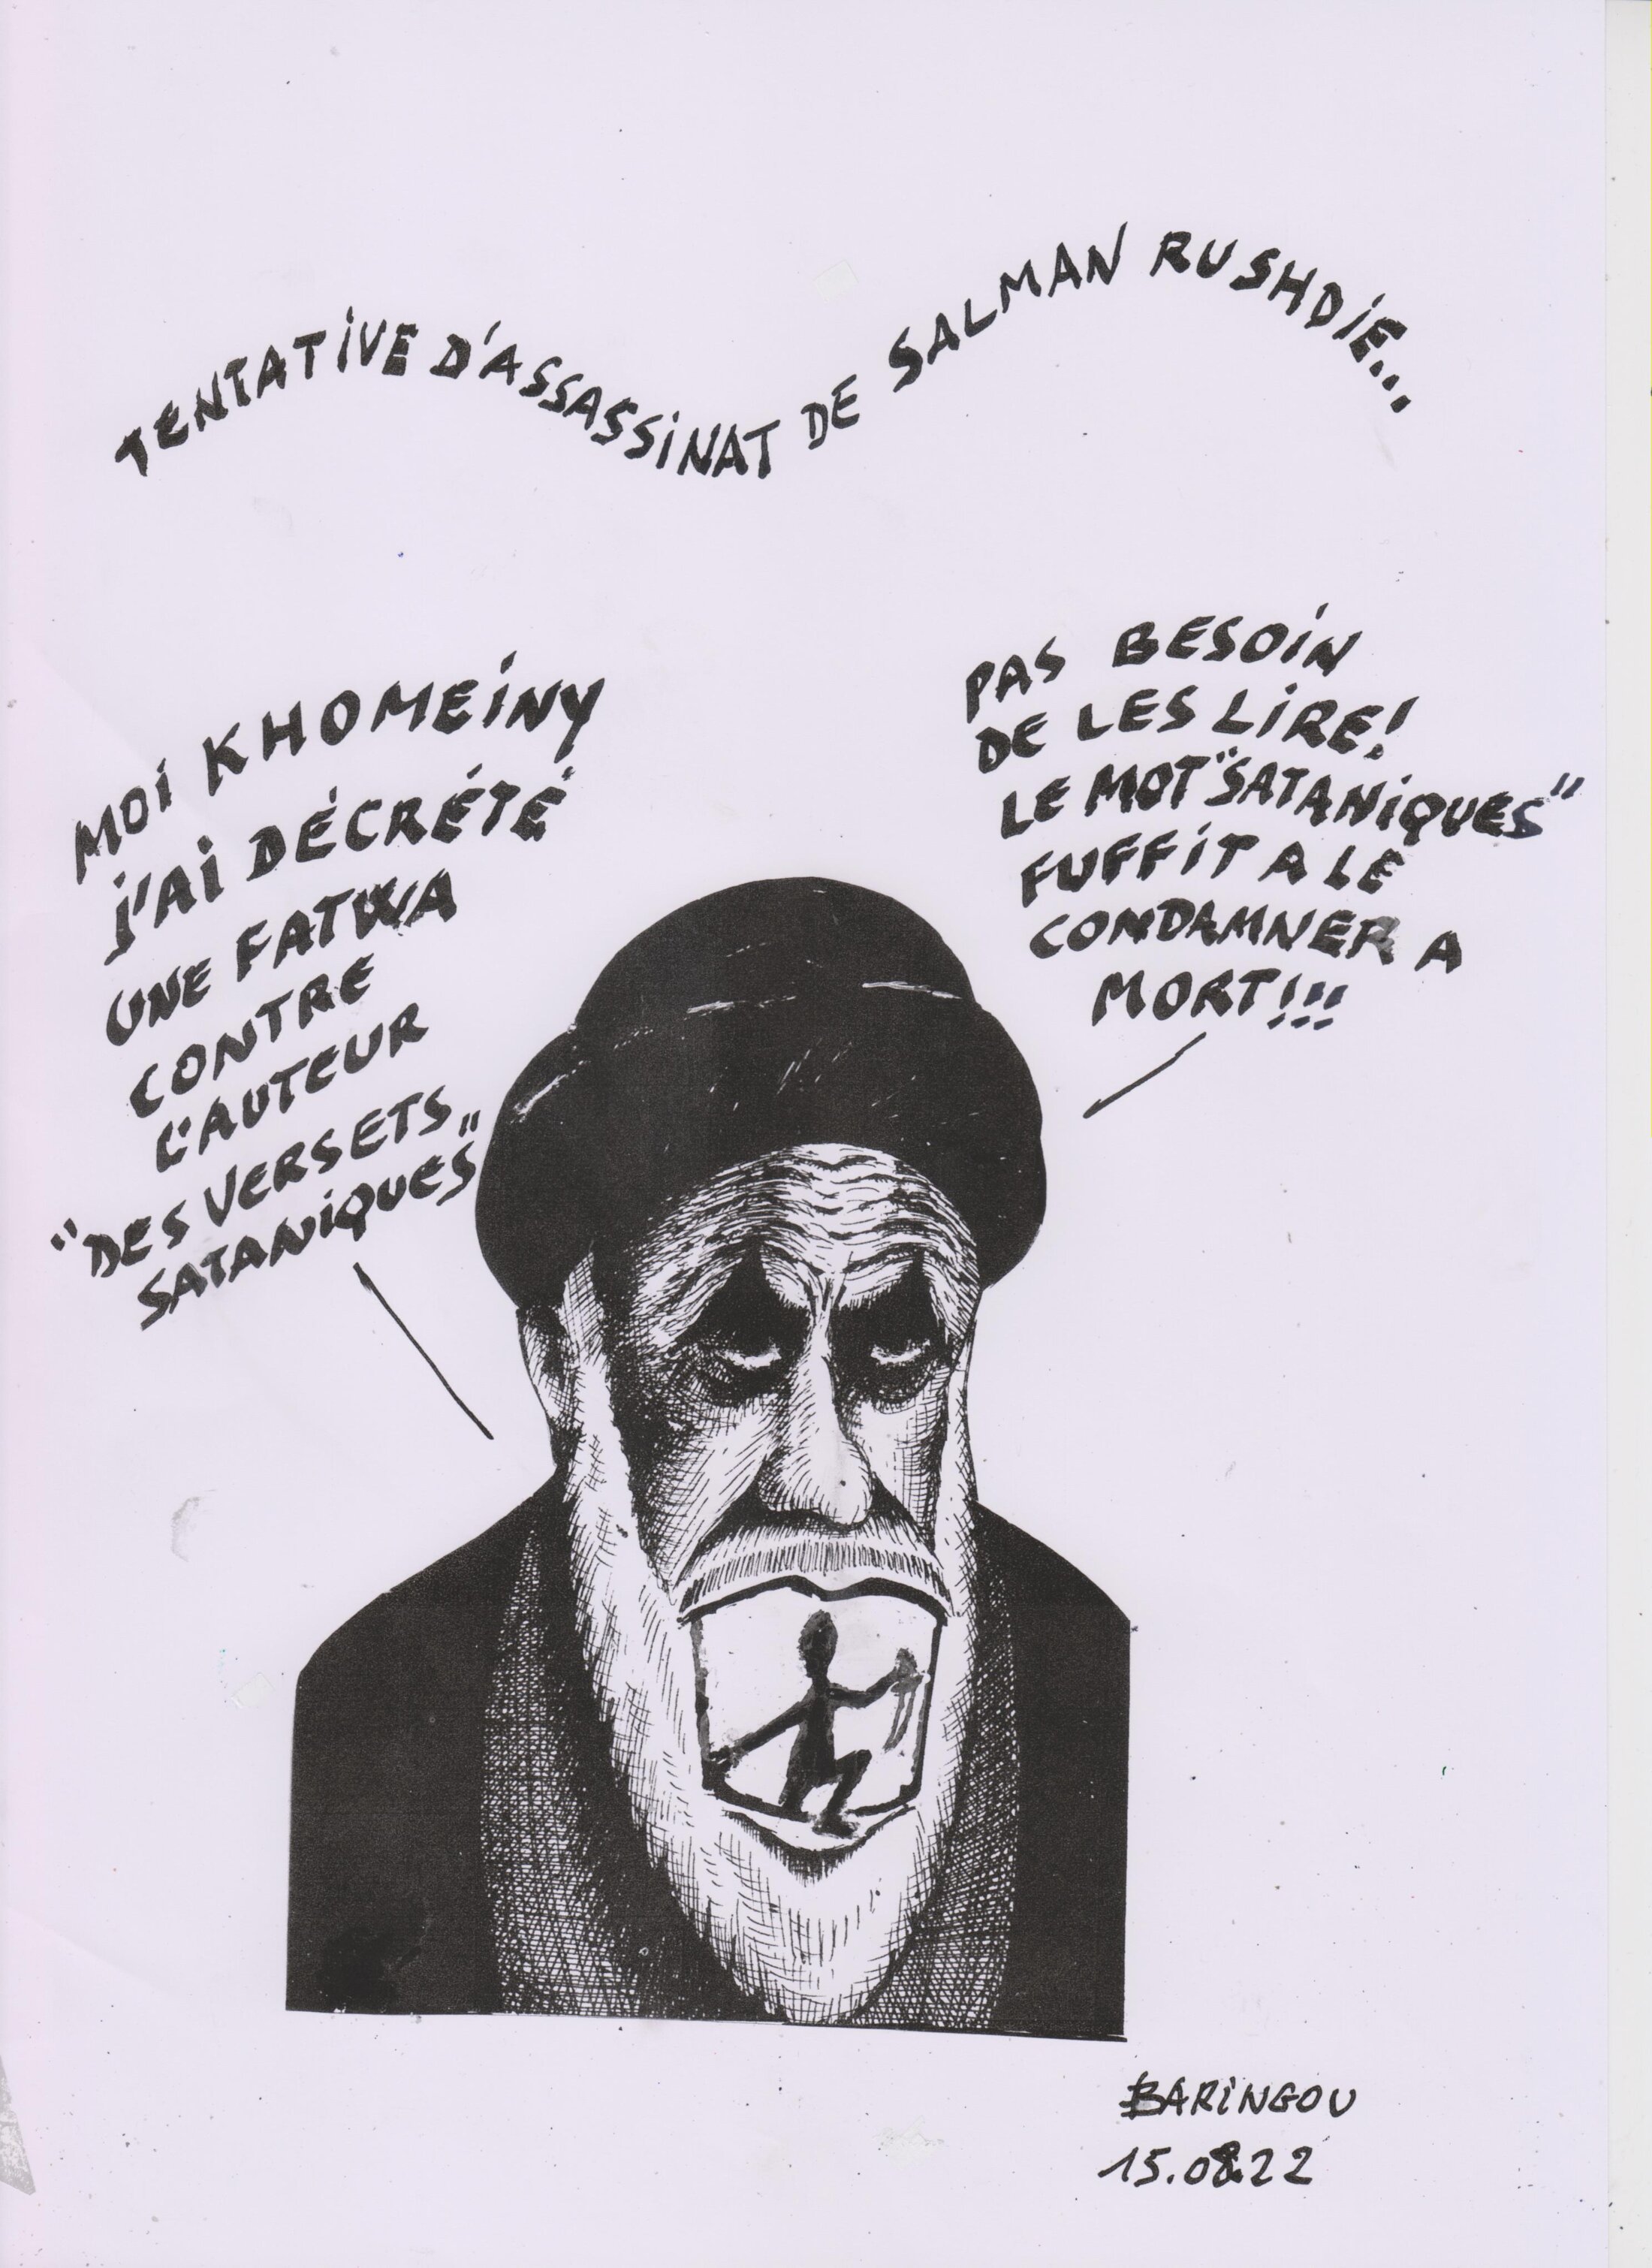 TENTATIVE D'ASSASSINAT DE SALMAN RUSHDIE...
MOI KHOMEINY
J'AI DÉCRÉTÉ
UNE FATWA
CONTRE
L'AUTEUR
"DES VERSETS
SATANIQUES"
PAS BESOIN
DE LES LIRE!
LE MOT "SATANIQUES"
FUFFIT A LE
CONDAMNER A
MORT!!!
BARINGOU
15.08.22